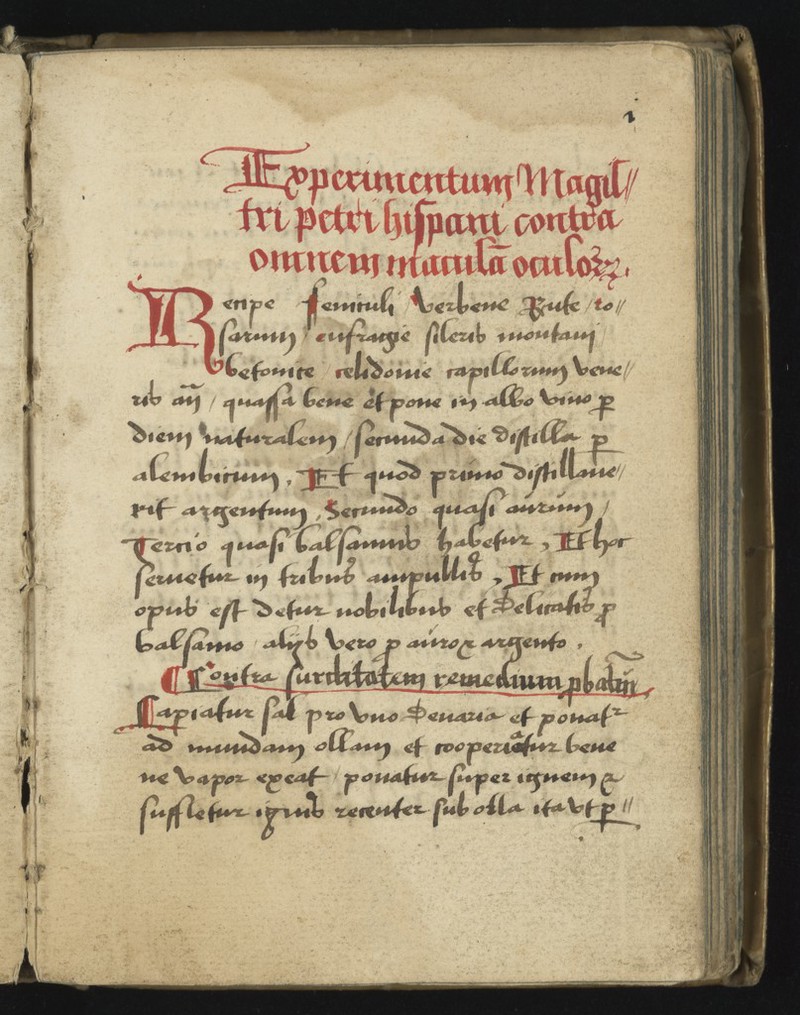 1
Experimentum Magis//
tri petri hispani contra
omnem maculā oculoꝝ.
Recipe feniculi / verbene Rute / ro//
sarum / eufragie sileris montani
betonice / celidonie capillorum vene//
ris añ / quassa bene et pone in albo vino ꝑ
diem naturalem / secunda die distilla ꝑ
alembicum, Et quod primo distillaue/
rit argentum, Secundo quasi aurum /
Tercio quasi balsamus habetur, Et hoc
seruetur in tribus ampullis, Et cum
opus est detur nobilibus et delicatis ꝓ
balsamo alijs vero ꝓ auro ⁊ argento.
¶ Contra surditatem remedium ꝓbatū
Capiatur sal pro vno denario et ponatʳ
ad mundam ollam et cooperiātur bene
ne vapor exeat / ponatur super ignem ⁊
suffletur ignis recenter sub olla ita vt ꝑ //